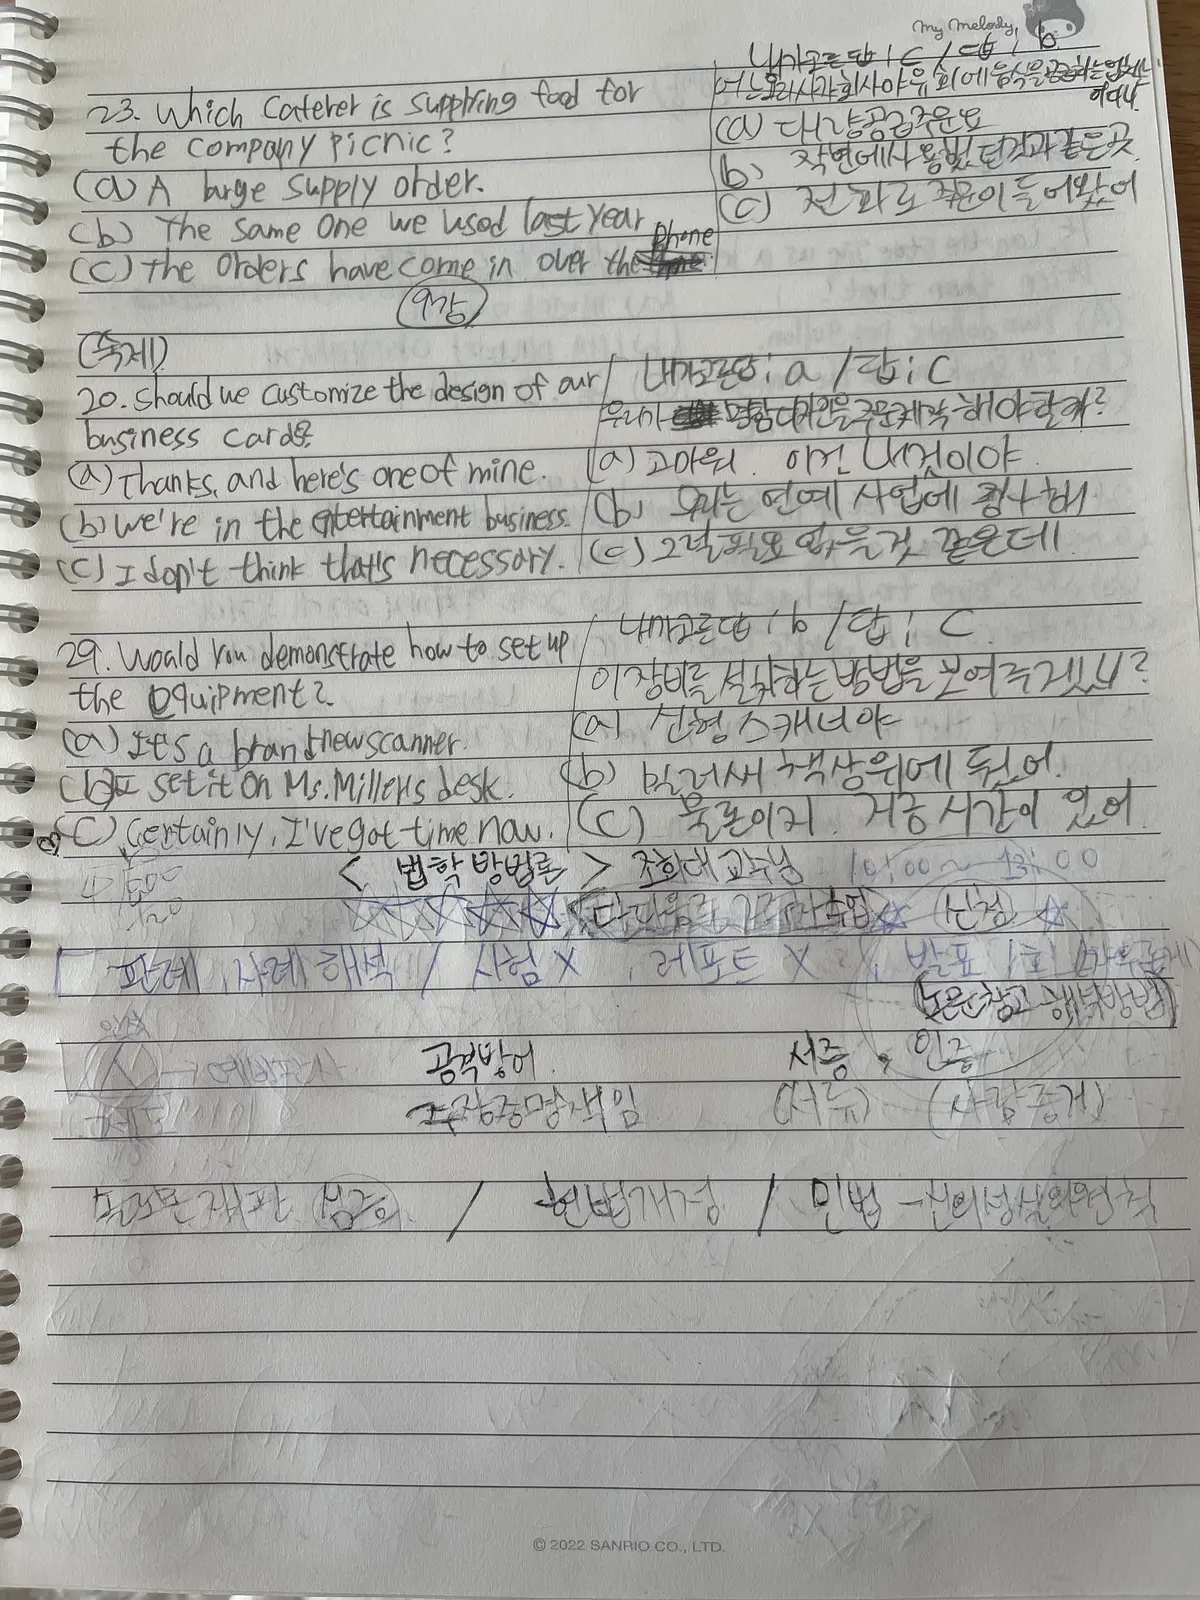 My Melody
내가고른답 : c / 답 : b
23. Which caterer is supplying food for
the company picnic?
(a) A large supply order.
(b) The same one we used last year
(c) the orders have come in over the phone
어느 요리사가 회사야유회에 음식을 공급하는
(a) 대량공급주문요
b) 작년에 사용했던것과 같은곳.
(c) 전화로 주문이 들어왔어
9강
(숙제)
20. Should we customize the design of our
business cards?
(a) Thanks, and here's one of mine.
(b) we're in the entertainment business.
(c) I don't think that's necessary.
내가고른답 : a / 답 : c
우리가 명함디자인을 주문제작 해야할까?
(a) 고마워. 이건 내것이야
(b) 우리는 연예 사업에 종사해
(c) 그럴 필요 없을것 같은데
29. Would you demonstrate how to set up
the equipment?
(a) It's a brand new scanner.
(b) I set it on Ms. Miller's desk.
(c) Certainly, I've got time now.
내가고른답 : b / 답 : c
이 장비를 설치하는 방법을 보여주겠니?
(a) 신형 스캐너야
(b) 밀러씨 책상위에 뒀어.
(c) 물론이지. 지금 시간이 있어
< 법학 방법론 > 조희대 교수님 10:00 ~ 13:00
신청
판례, 사례 해석 / 시험 X , 레포트 X , 발표 1회
논문참고 해석방법
공격방어 서증, 인증
주장증명책임 (서류) (사람증거)
/ 헌법개정 / 민법 - 신의성실의원칙
© 2022 SANRIO CO., LTD.